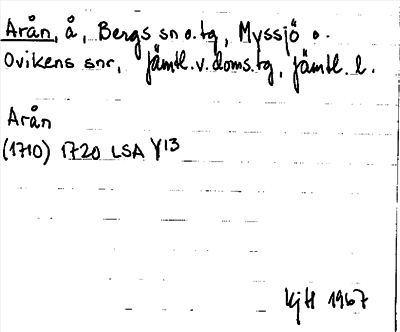 Arån, å, Bergs sn o. tg, Myssjö o.
Ovikens snr, Jämtl. v. doms. tg, Jämtl. l.
Arån
(1710) 1720 LSA Y13
KjH 1967